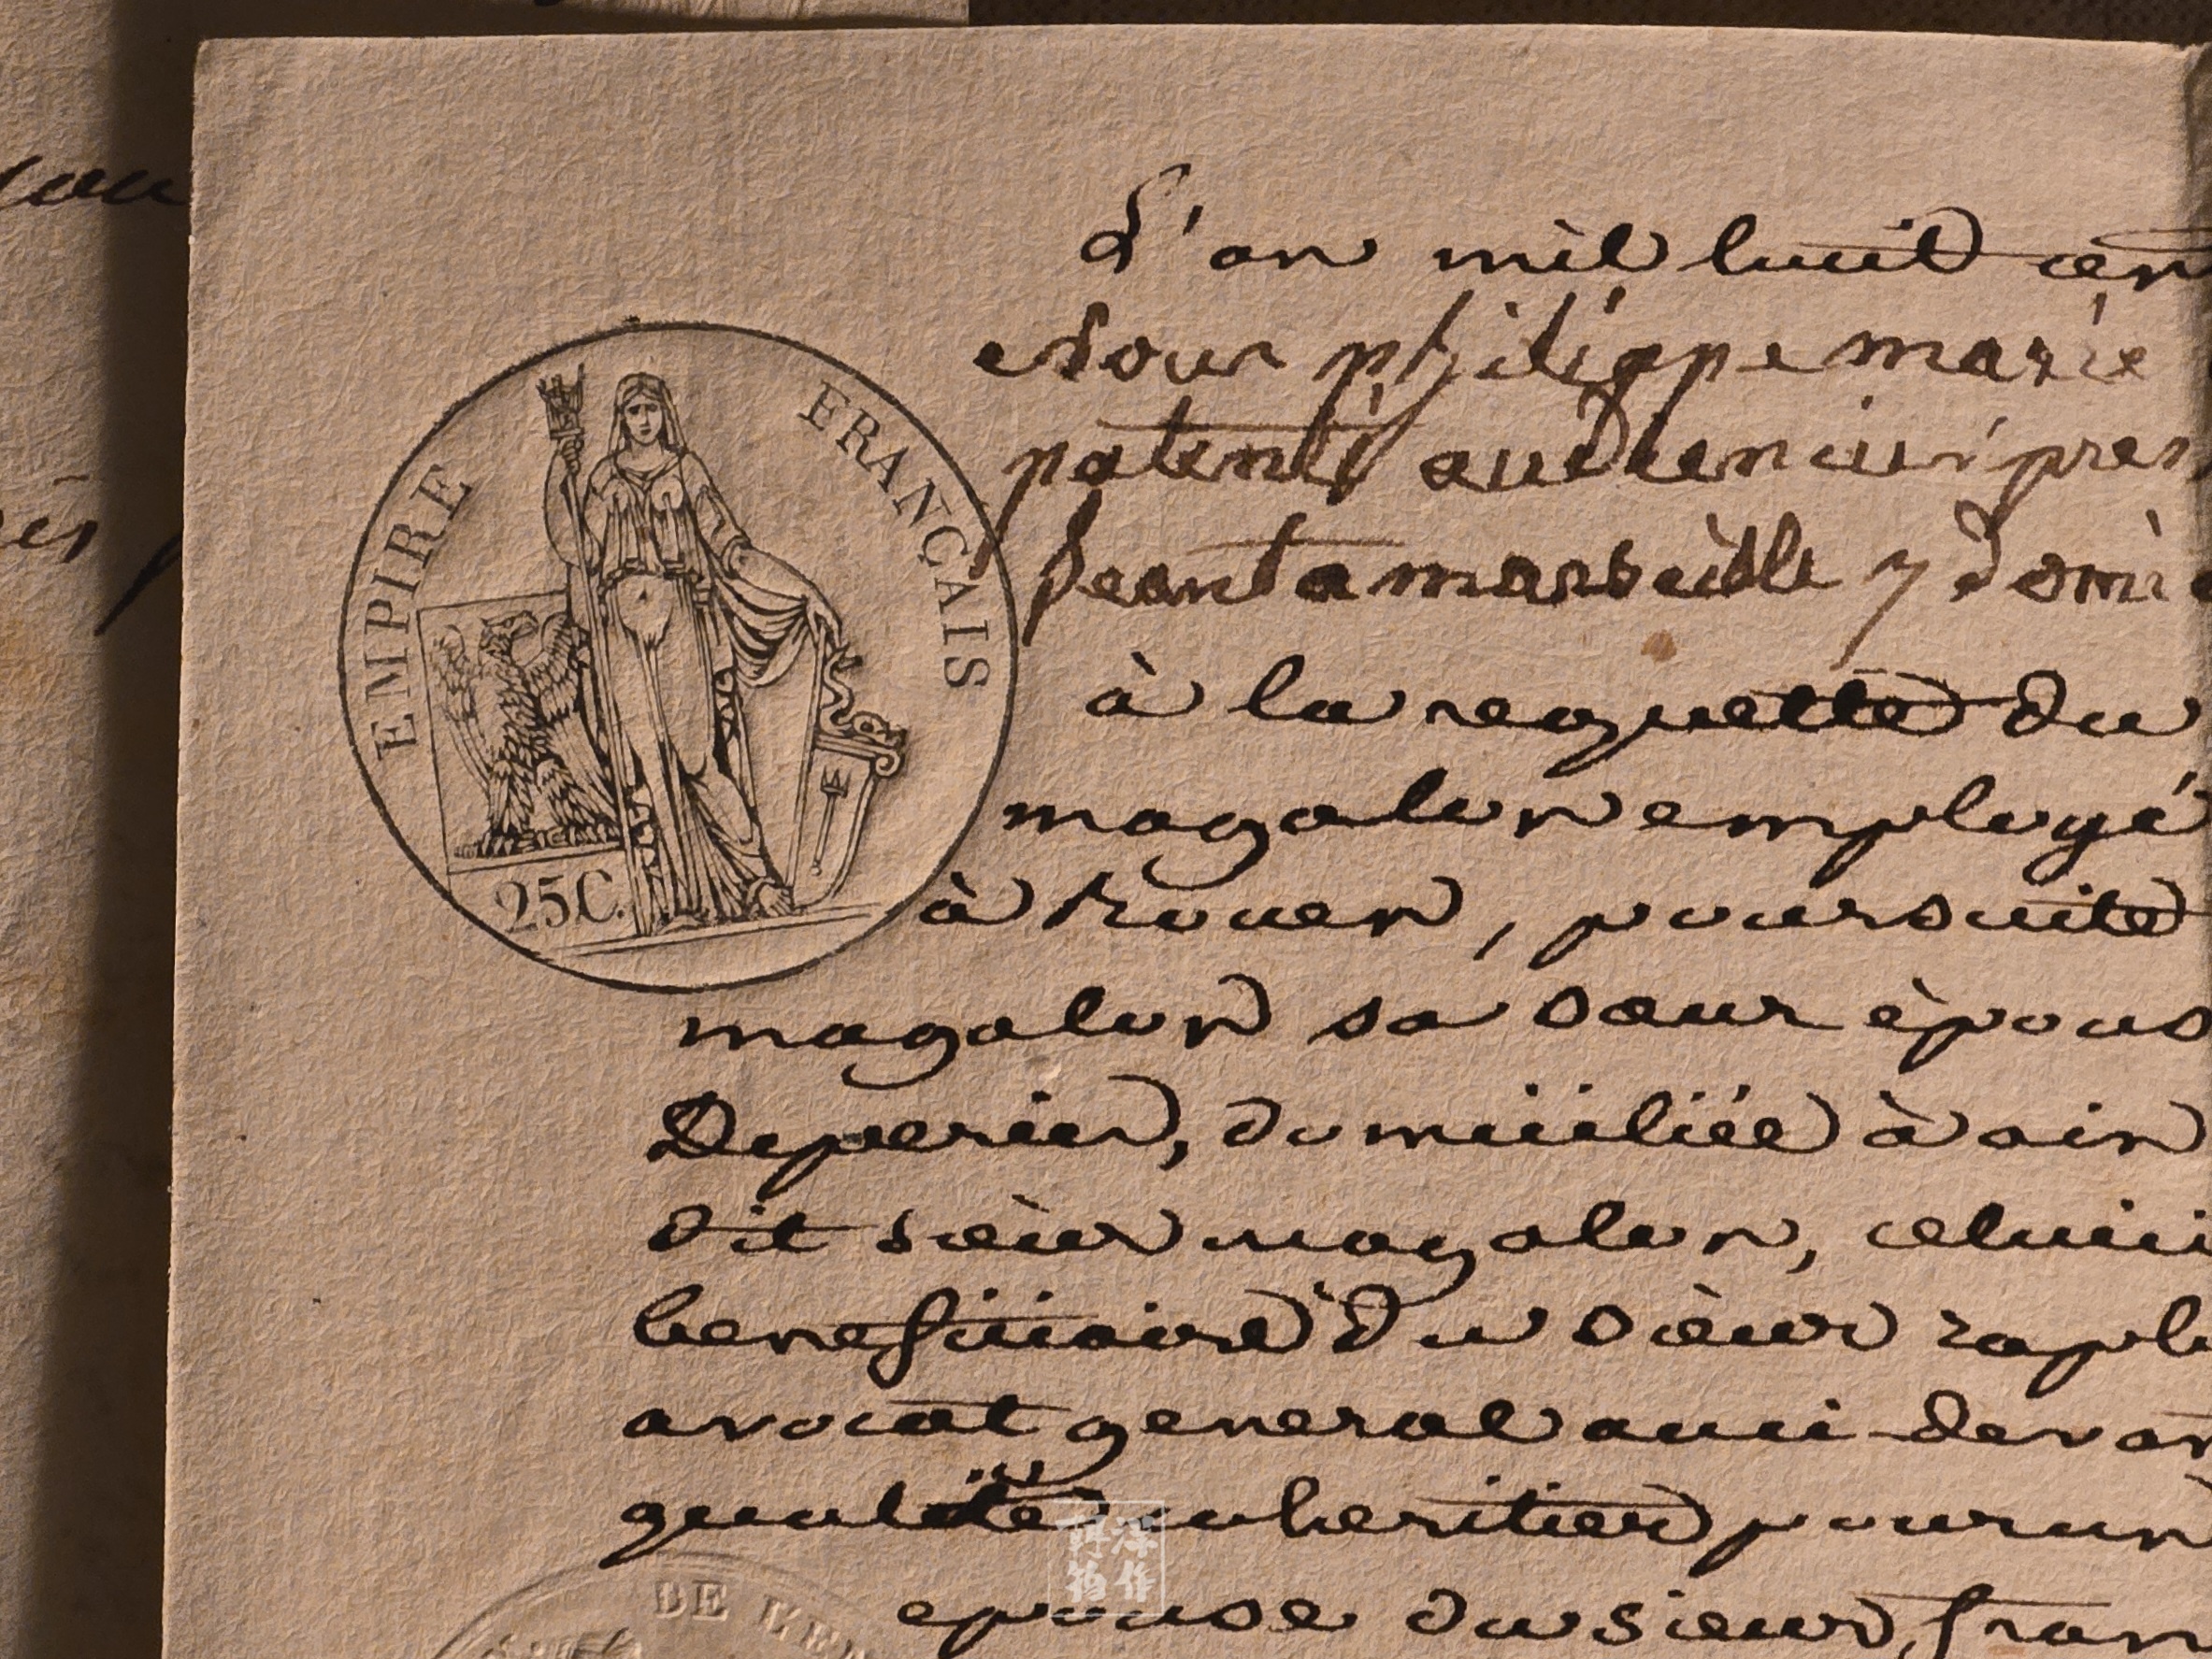 L'an mil huit cen
EMPIRE FRANCAIS
25C.
philippe marie
patenté audiencier pres
seant a marseille y domi
à la requette du
magalon employé
à Rouen, poursuite
magalon sa sœur épous
Deperier, domiciliée à aix
dit sieur magalon, celuici
beneficiaire du sieur
avocat general aux ci-devan
qualité heritier pour un
DE L'E
epouse du sieur fran